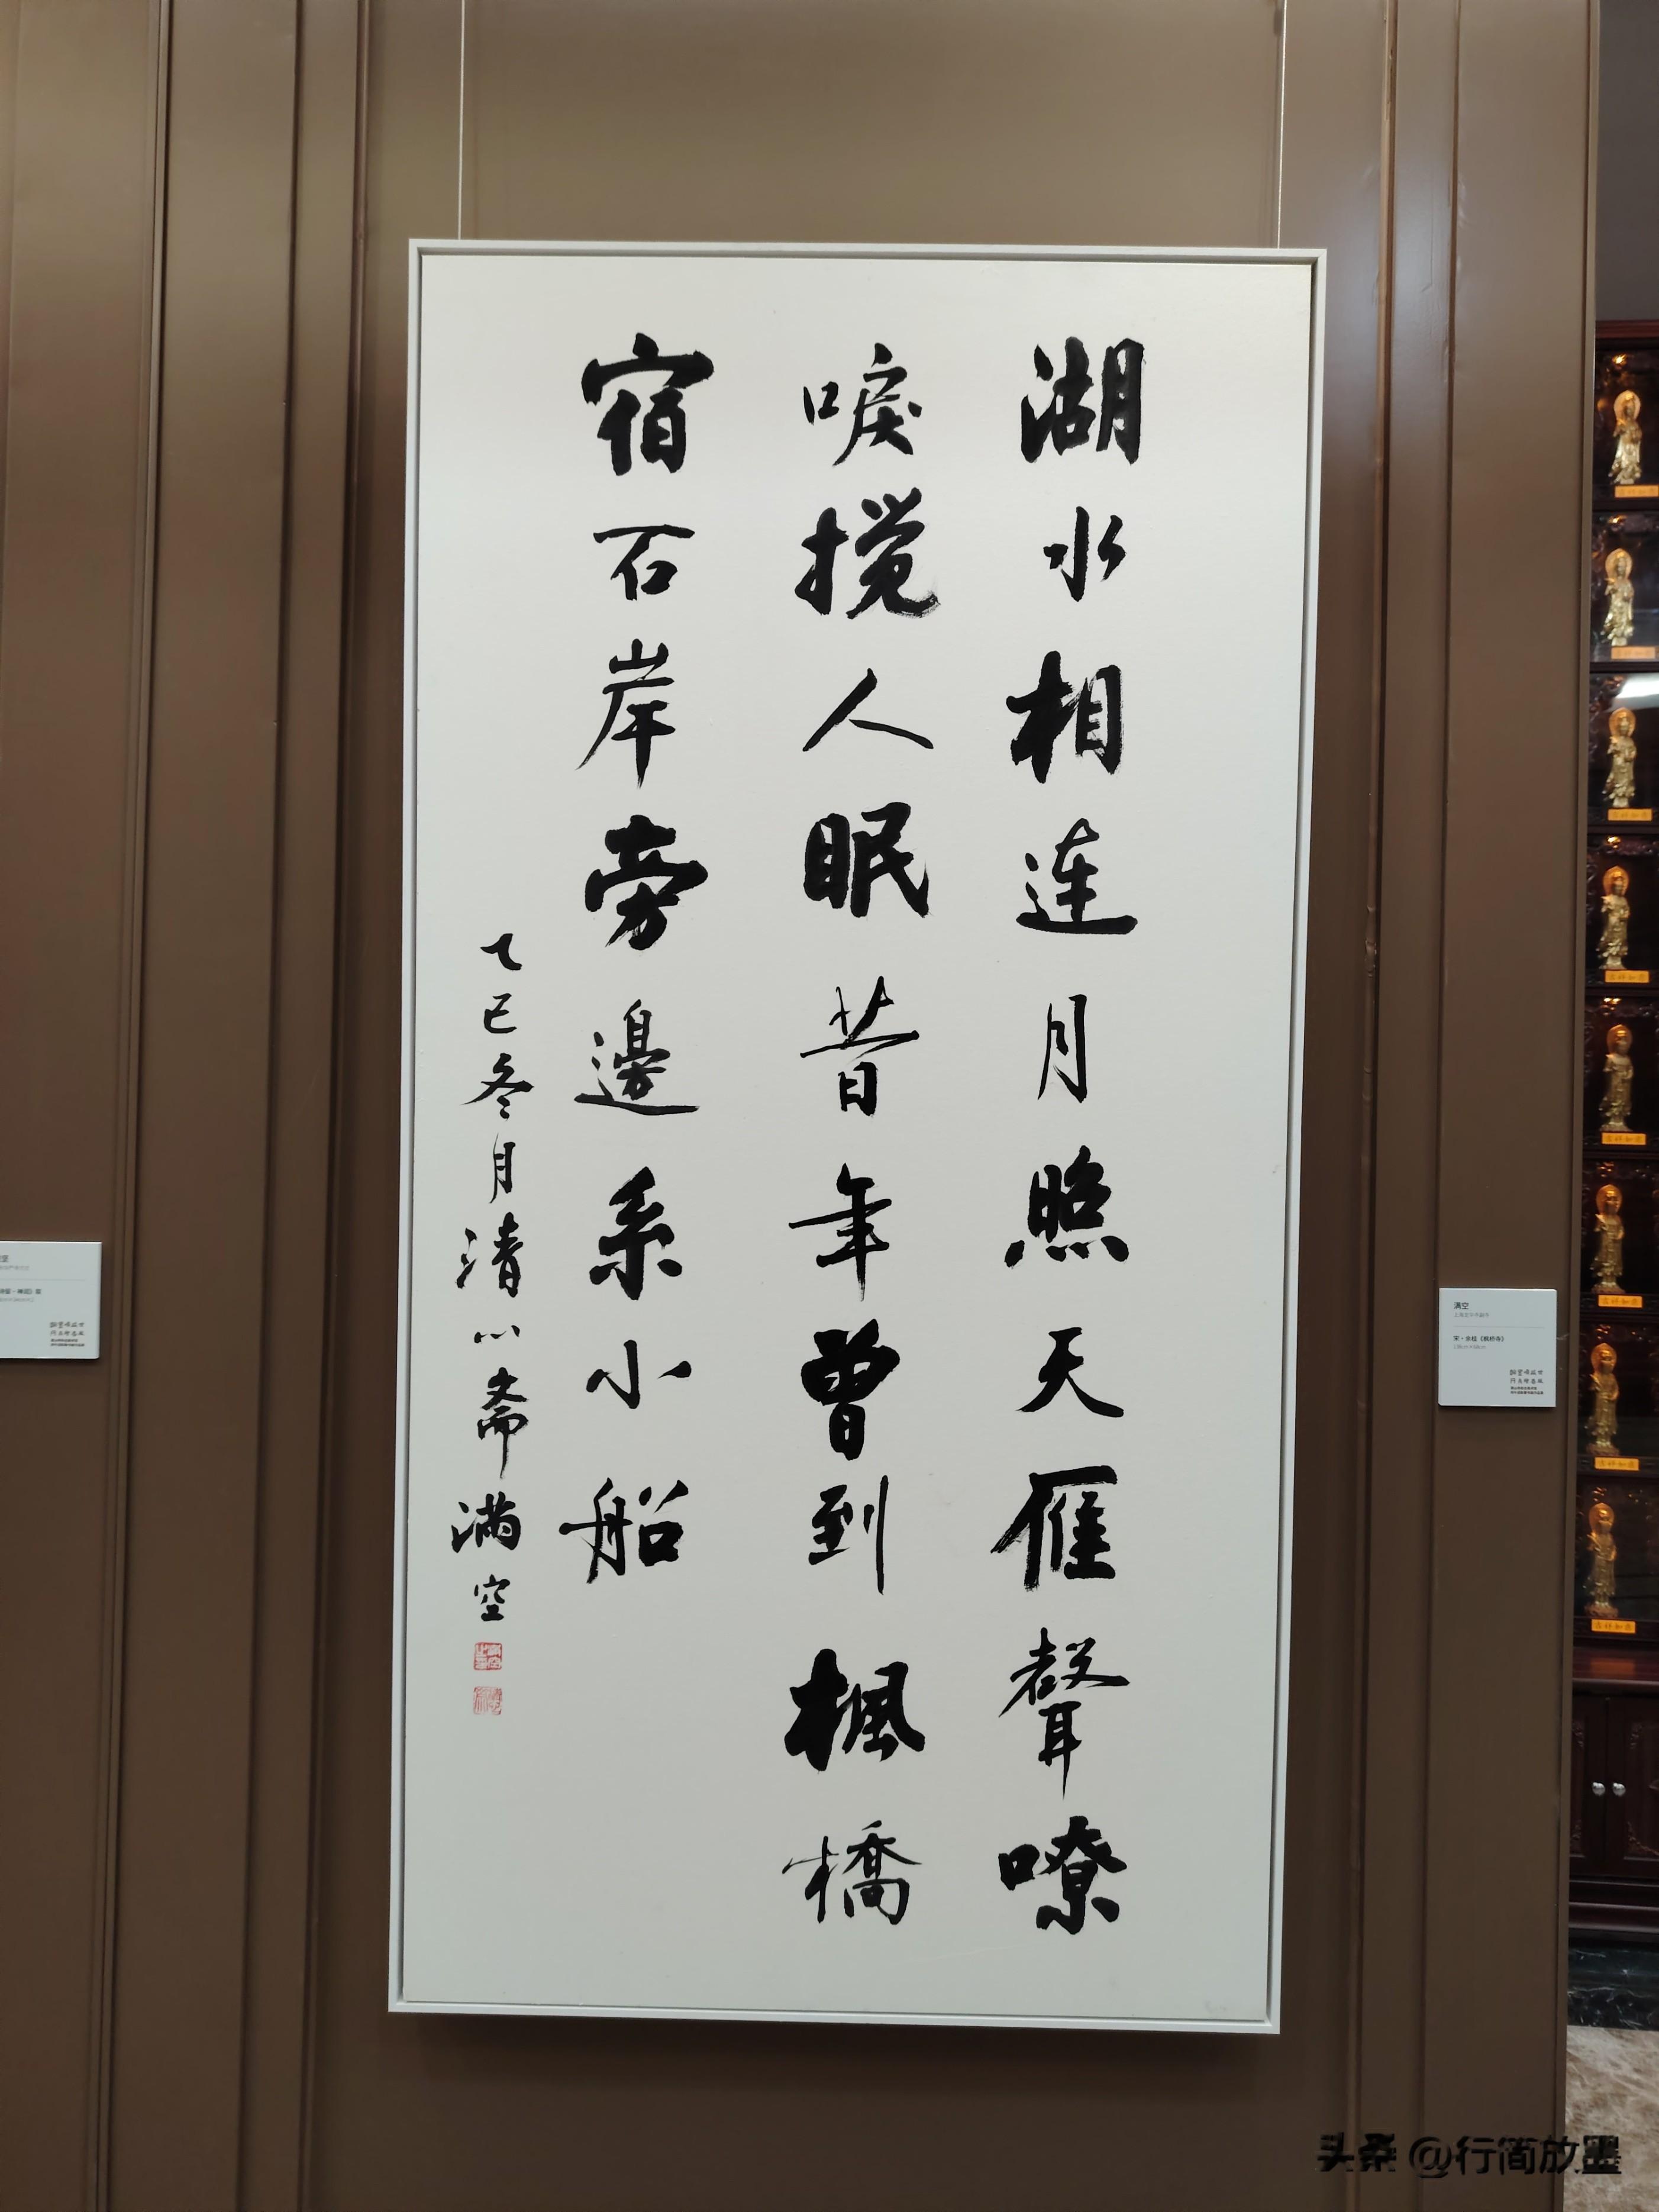 湖水相连月照天雁聲嘹
唳搅人眠昔年曾到楓橋
宿石岸旁邊系小船
乙巳冬月清心斋满空
满空
宋·余桂《枫桥寺》
吉祥如意
头条 @行简放墨